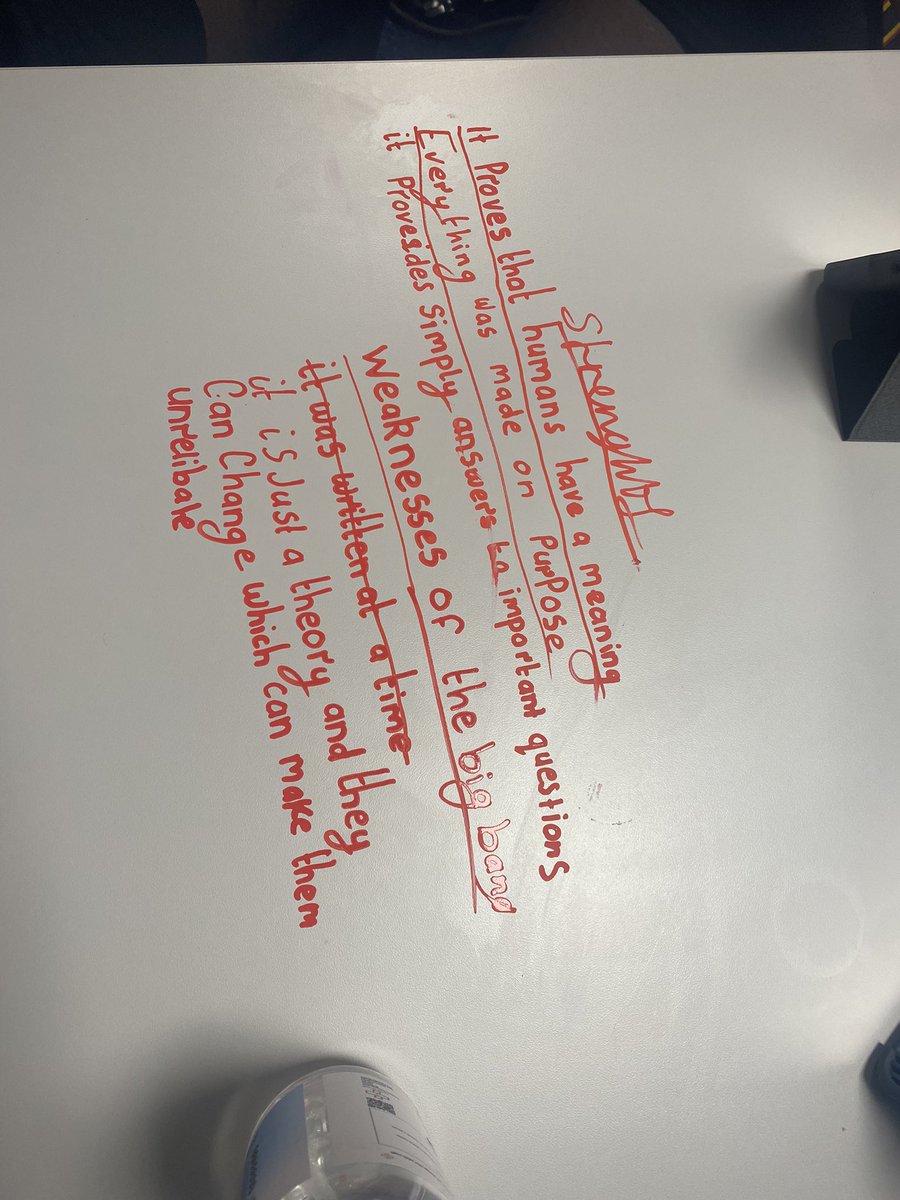 Strengths
It Proves that humans have a meaning
Everything was made on purpose
it provesides simply answers to important questions
Weaknesses of the big bang
it was written at a time
it is Just a theory and they
Can Change which can make them
unrelibale